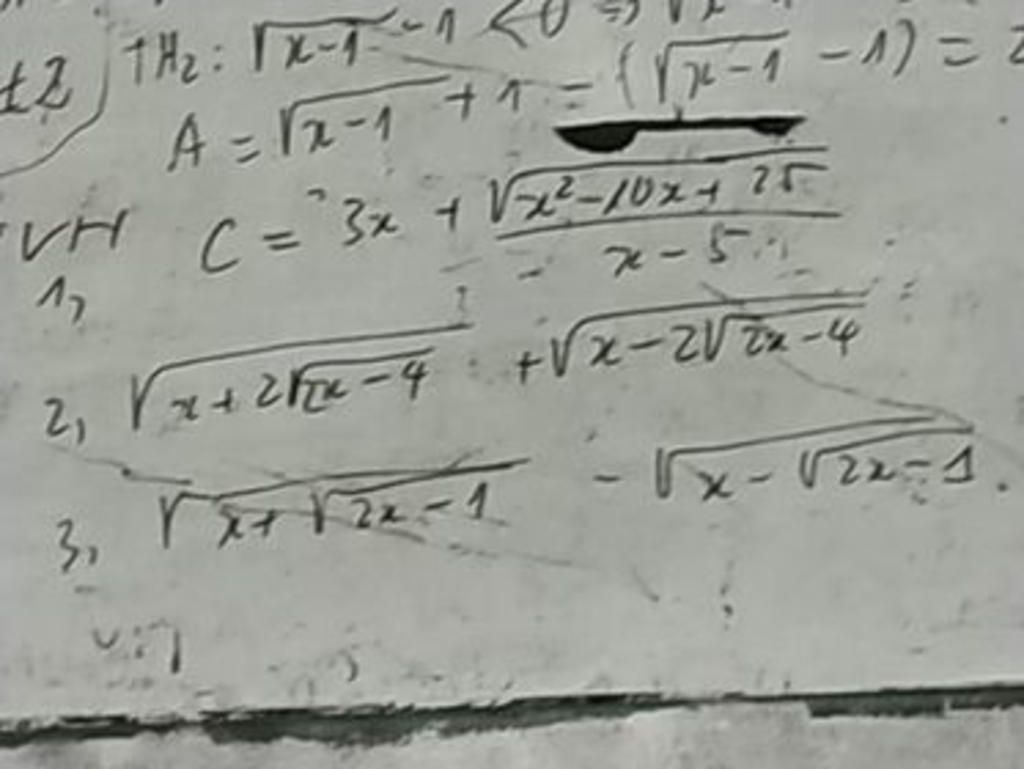 ±2 TH2: √(x-1) - 1 < 0 ⇒ √x
A = √(x-1) + 1 - (√(x-1) - 1) = 2
VH C = 3x + √(x²-10x+25) / (x-5)
1,
2, √(x+2√(2x-4)) + √(x-2√(2x-4))
3, √(x+√(2x-1)) - √(x-√(2x-1)).